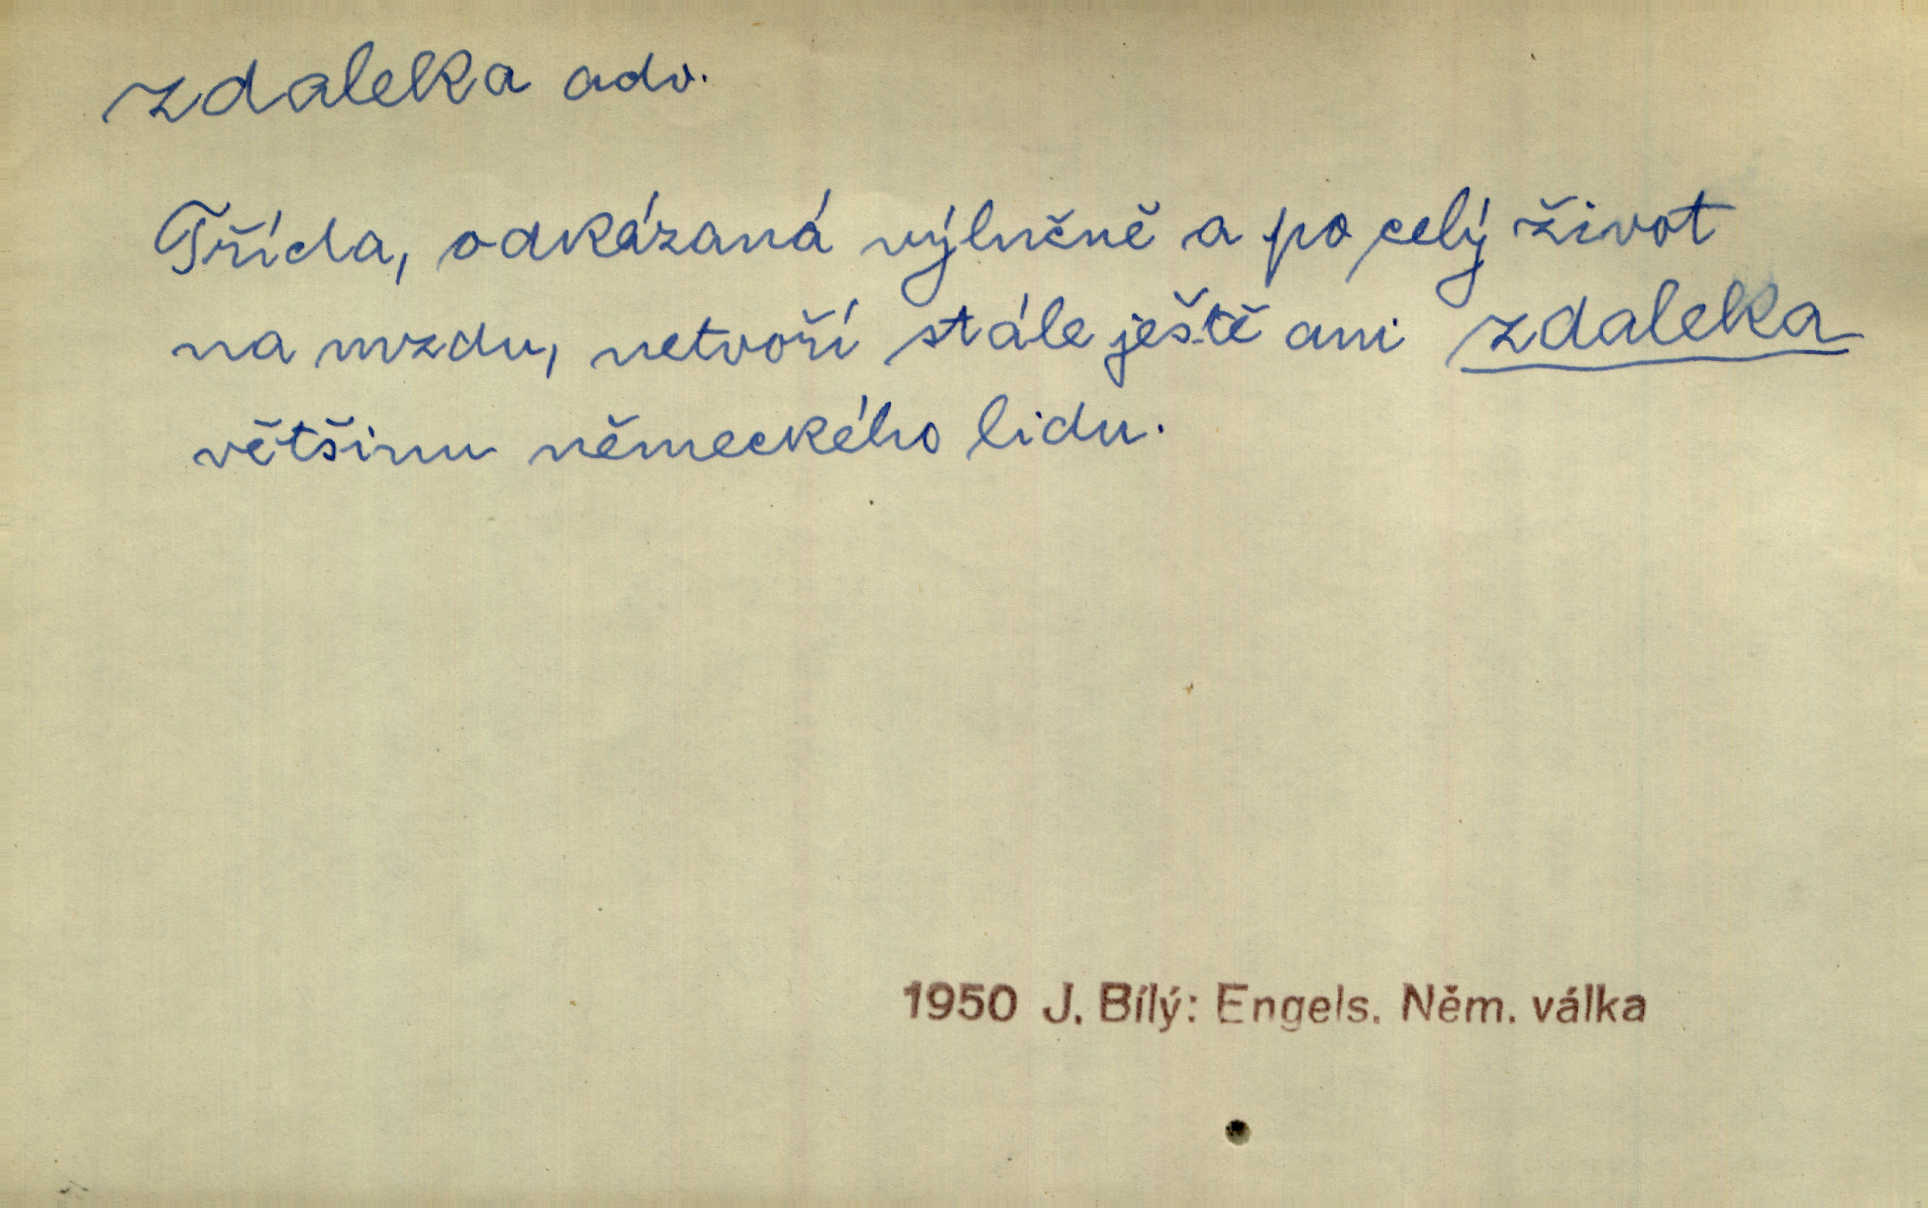 zdaleka adv.
Třída, odkázaná výlučně a po celý život
na mzdu, netvoří stále ještě ani zdaleka
většinu německého lidu.
1950 J. Bílý: Engels. Něm. válka